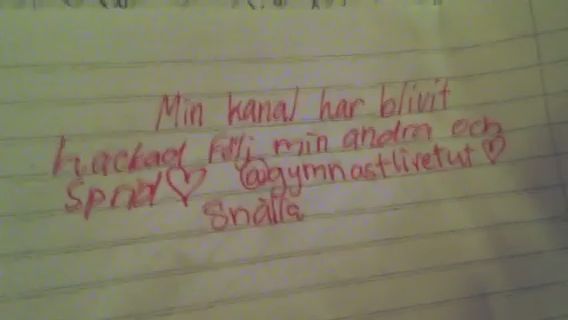 Min kanal har blivit
hackad Följ min andra och
Sprid♡ @gymnastlivetut♡
Snälla